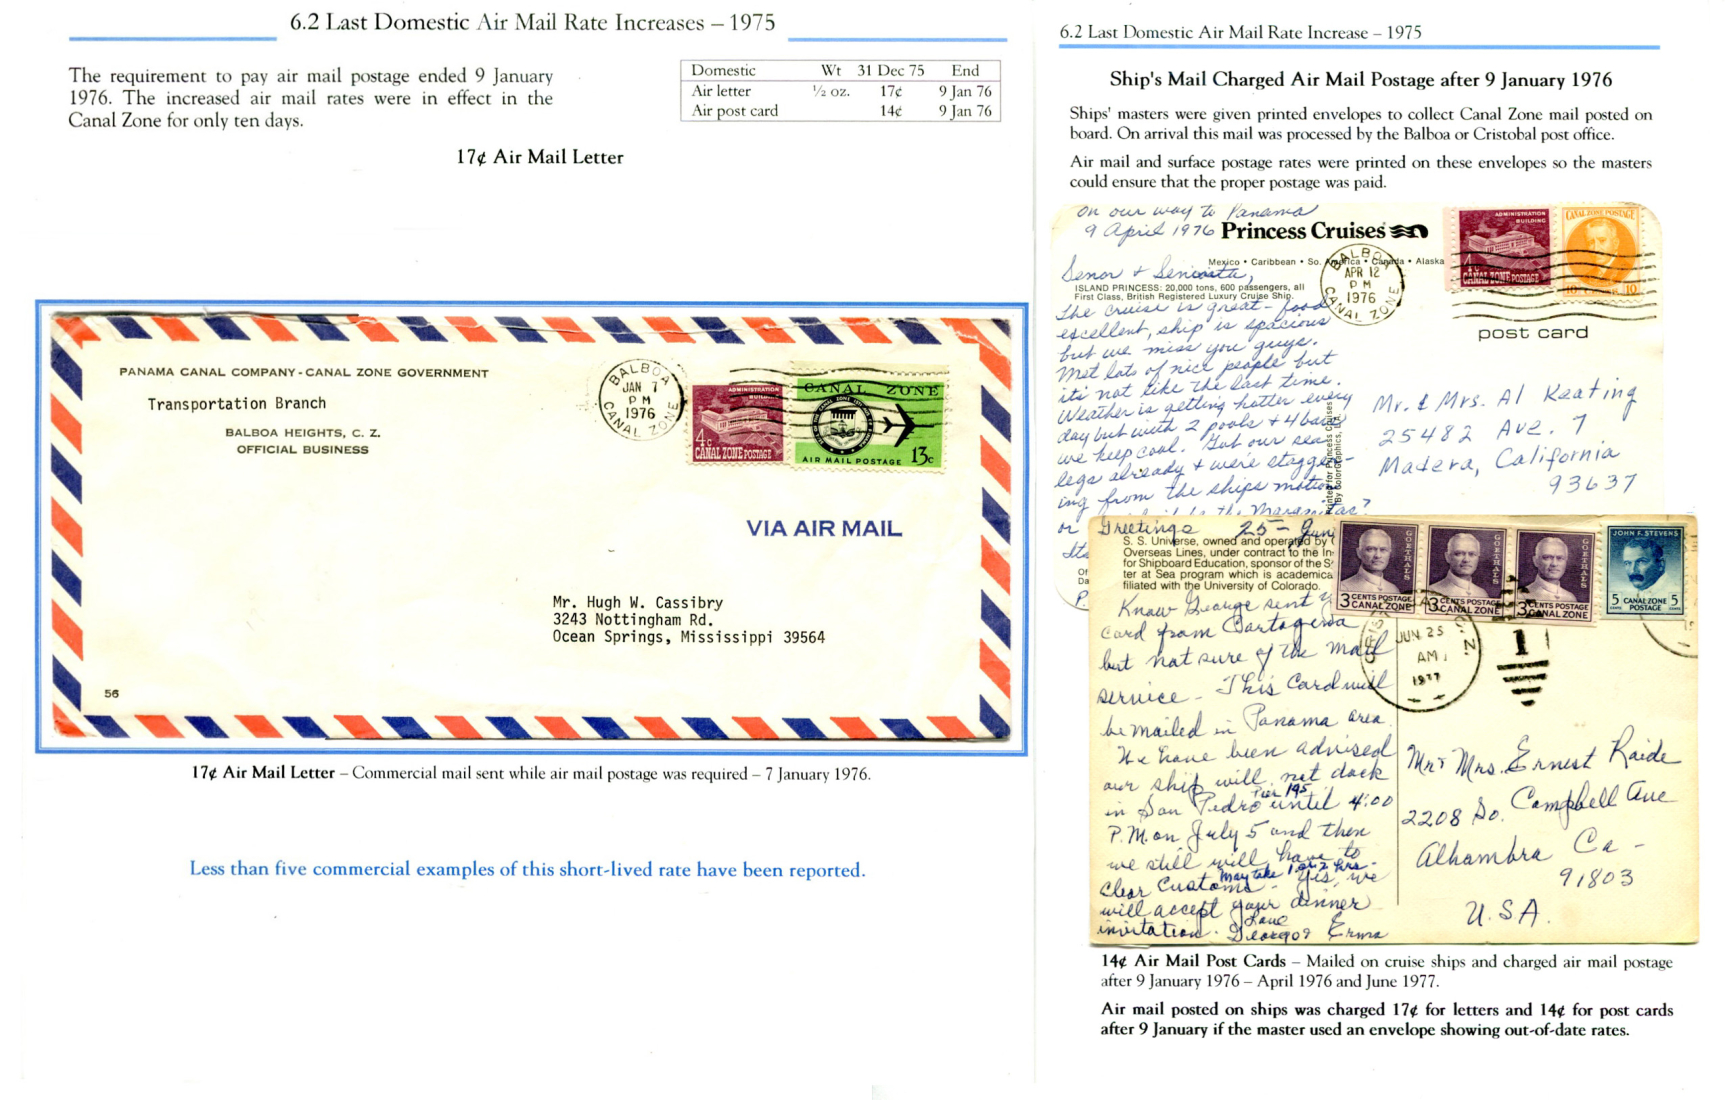 6.2 Last Domestic Air Mail Rate Increases – 1975
The requirement to pay air mail postage ended 9 January
1976. The increased air mail rates were in effect in the
Canal Zone for only ten days.
Domestic Wt 31 Dec 75 End
Air letter ½ oz. 17¢ 9 Jan 76
Air post card 14¢ 9 Jan 76
17¢ Air Mail Letter
PANAMA CANAL COMPANY - CANAL ZONE GOVERNMENT
Transportation Branch
BALBOA HEIGHTS, C. Z.
OFFICIAL BUSINESS
BALBOA
JAN 7
PM
1976
CANAL ZONE
ADMINISTRATION
BUILDING
4c
CANAL ZONE POSTAGE
CANAL ZONE
AIR MAIL POSTAGE 13c
VIA AIR MAIL
Mr. Hugh W. Cassibry
3243 Nottingham Rd.
Ocean Springs, Mississippi 39564
56
17¢ Air Mail Letter – Commercial mail sent while air mail postage was required – 7 January 1976.
Less than five commercial examples of this short-lived rate have been reported.
6.2 Last Domestic Air Mail Rate Increase – 1975
Ship's Mail Charged Air Mail Postage after 9 January 1976
Ships' masters were given printed envelopes to collect Canal Zone mail posted on
board. On arrival this mail was processed by the Balboa or Cristobal post office.
Air mail and surface postage rates were printed on these envelopes so the masters
could ensure that the proper postage was paid.
on our way to Panama
9 April 1976
Princess Cruises
Mexico • Caribbean • So. America • Canada • Alaska
ISLAND PRINCESS: 20,000 tons, 600 passengers, all
First Class, British Registered Luxury Cruise Ship.
Senor & Senorita,
The cruise is great - food
excellent, ship is spacious
but we miss you guys.
Met lots of nice people but
it's not like the last time.
Weather is getting hotter every
day but with 2 pools & 4 bars
we keep cool. Got our sea
legs already & we're stagger-
ing from the ships motion
or
Its
Printed for Princess Cruises
By ColorGraphics, L.A.
BALBOA
APR 12
PM
1976
CANAL ZONE
ADMINISTRATION
BUILDING
4c
CANAL ZONE POSTAGE
CANAL ZONE POSTAGE
10 10
post card
Mr. & Mrs. Al Keating
25482 Ave. 7
Madera, California
93637
Greetings 25 - Jun
S. S. Universe, owned and operated by
Overseas Lines, under contract to the In-
for Shipboard Education, sponsor of the S
ter at Sea program which is academica
filiated with the University of Colorado.
Know George sent y
card from Cartagena
but not sure of the mail
service - This card will
be mailed in Panama area.
We have been advised
our ship will not dock
Pier 195
in San Pedro until 4:00
P.M. on July 5 and then
we still will have to
May take 1 or 2 hrs -
clear Customs - Yes, we
will accept your dinner
invitation. Love
George & Erma
GOETHALS
3 CENTS POSTAGE
CANAL ZONE
GOETHALS
3 CENTS POSTAGE
CANAL ZONE
GOETHALS
3 CENTS POSTAGE
CANAL ZONE
JOHN F. STEVENS
5 CENTS CANAL ZONE POSTAGE 5 CENTS
JUN 25
AM
1977
C.Z.
1
Mr & Mrs. Ernest Raide
2208 So. Campbell Ave
Alhambra Ca -
91803
U.S.A.
14¢ Air Mail Post Cards – Mailed on cruise ships and charged air mail postage
after 9 January 1976 – April 1976 and June 1977.
Air mail posted on ships was charged 17¢ for letters and 14¢ for post cards
after 9 January if the master used an envelope showing out-of-date rates.